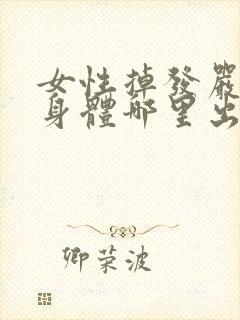 女性掉發嚴
身體哪里出
卿荣波